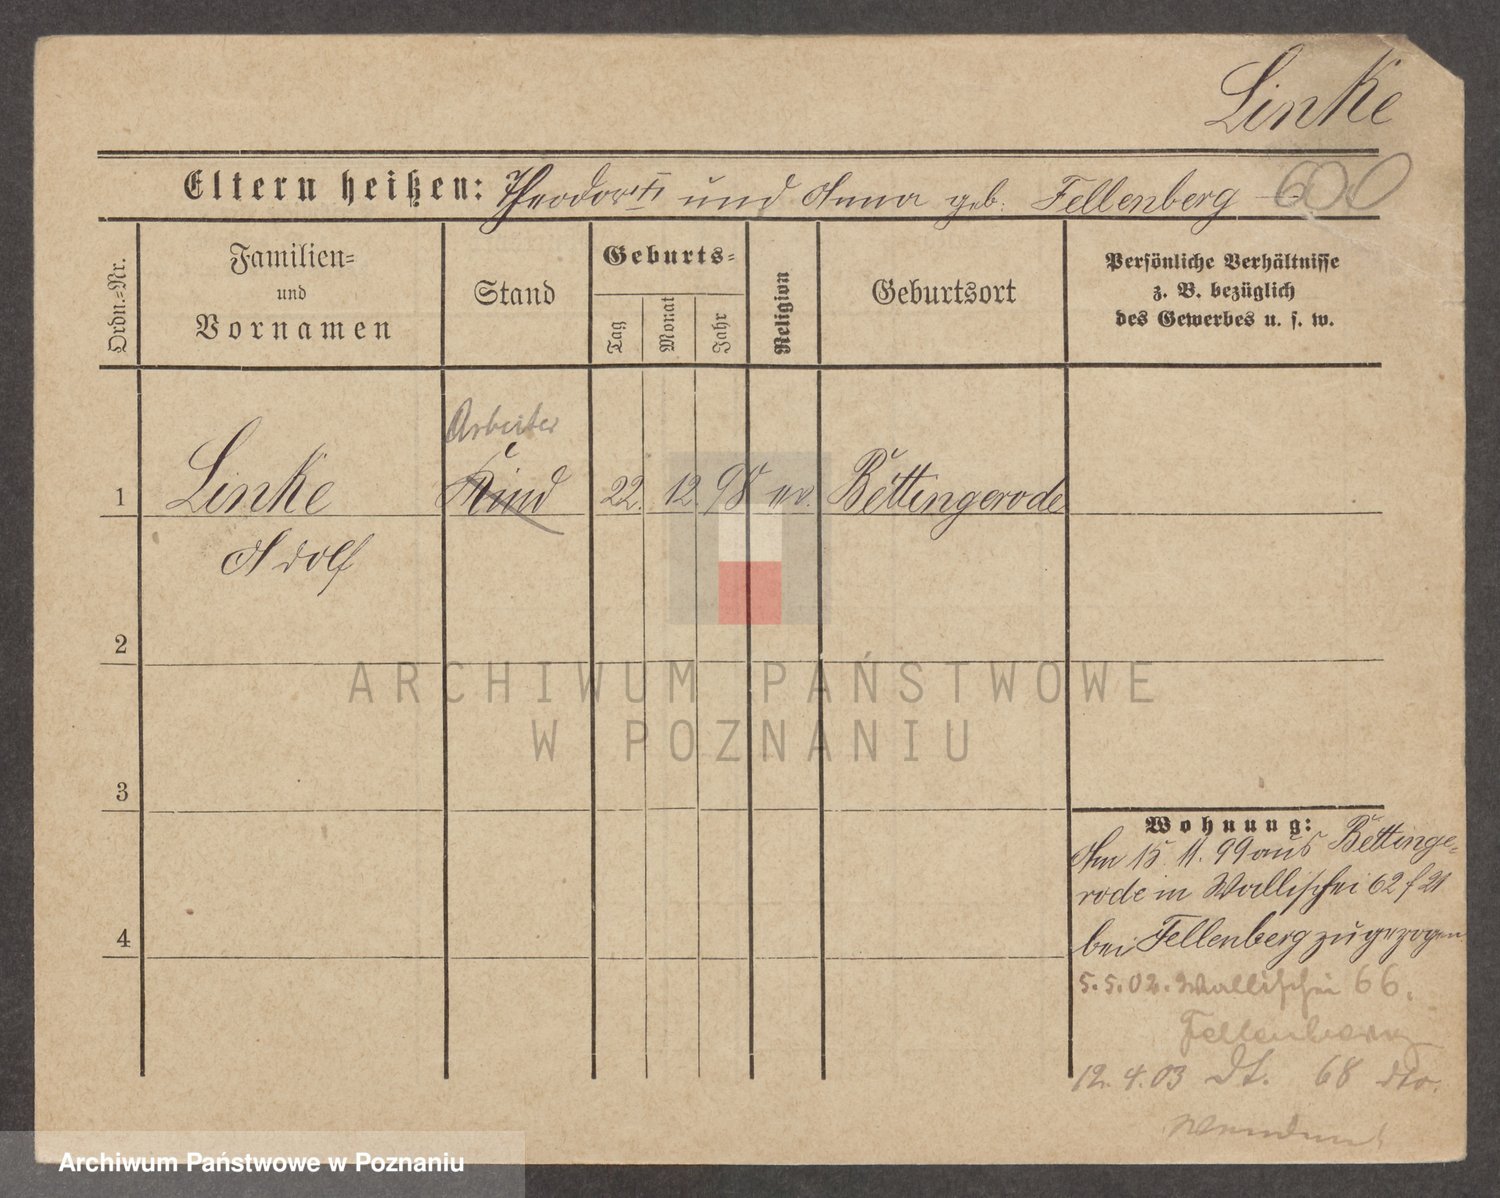 Linke
600
Eltern heißen: Theodor †† und Anna geb. Fellenberg
Ordn.=Nr.
Familien=
und
Vornamen
Stand
Geburts=
Tag
Monat
Jahr
Religion
Geburtsort
Persönliche Verhältnisse
z. B. bezüglich
des Gewerbes u. s. w.
Arbeiter
1 Linke Kind 22. 12. 98 ev. Bettingerode
Adolf
2
3
4
Wohnung:
Am 15. 11. 99 aus Bettinge=
rode in Wallischei 62 f 21
bei Fellenberg zugezogen
5.5.02. Wallischei 66.
Fellenberg
12.4.03 dt. 68 dto.
ARCHIWUM PAŃSTWOWE
W POZNANIU
Archiwum Państwowe w Poznaniu